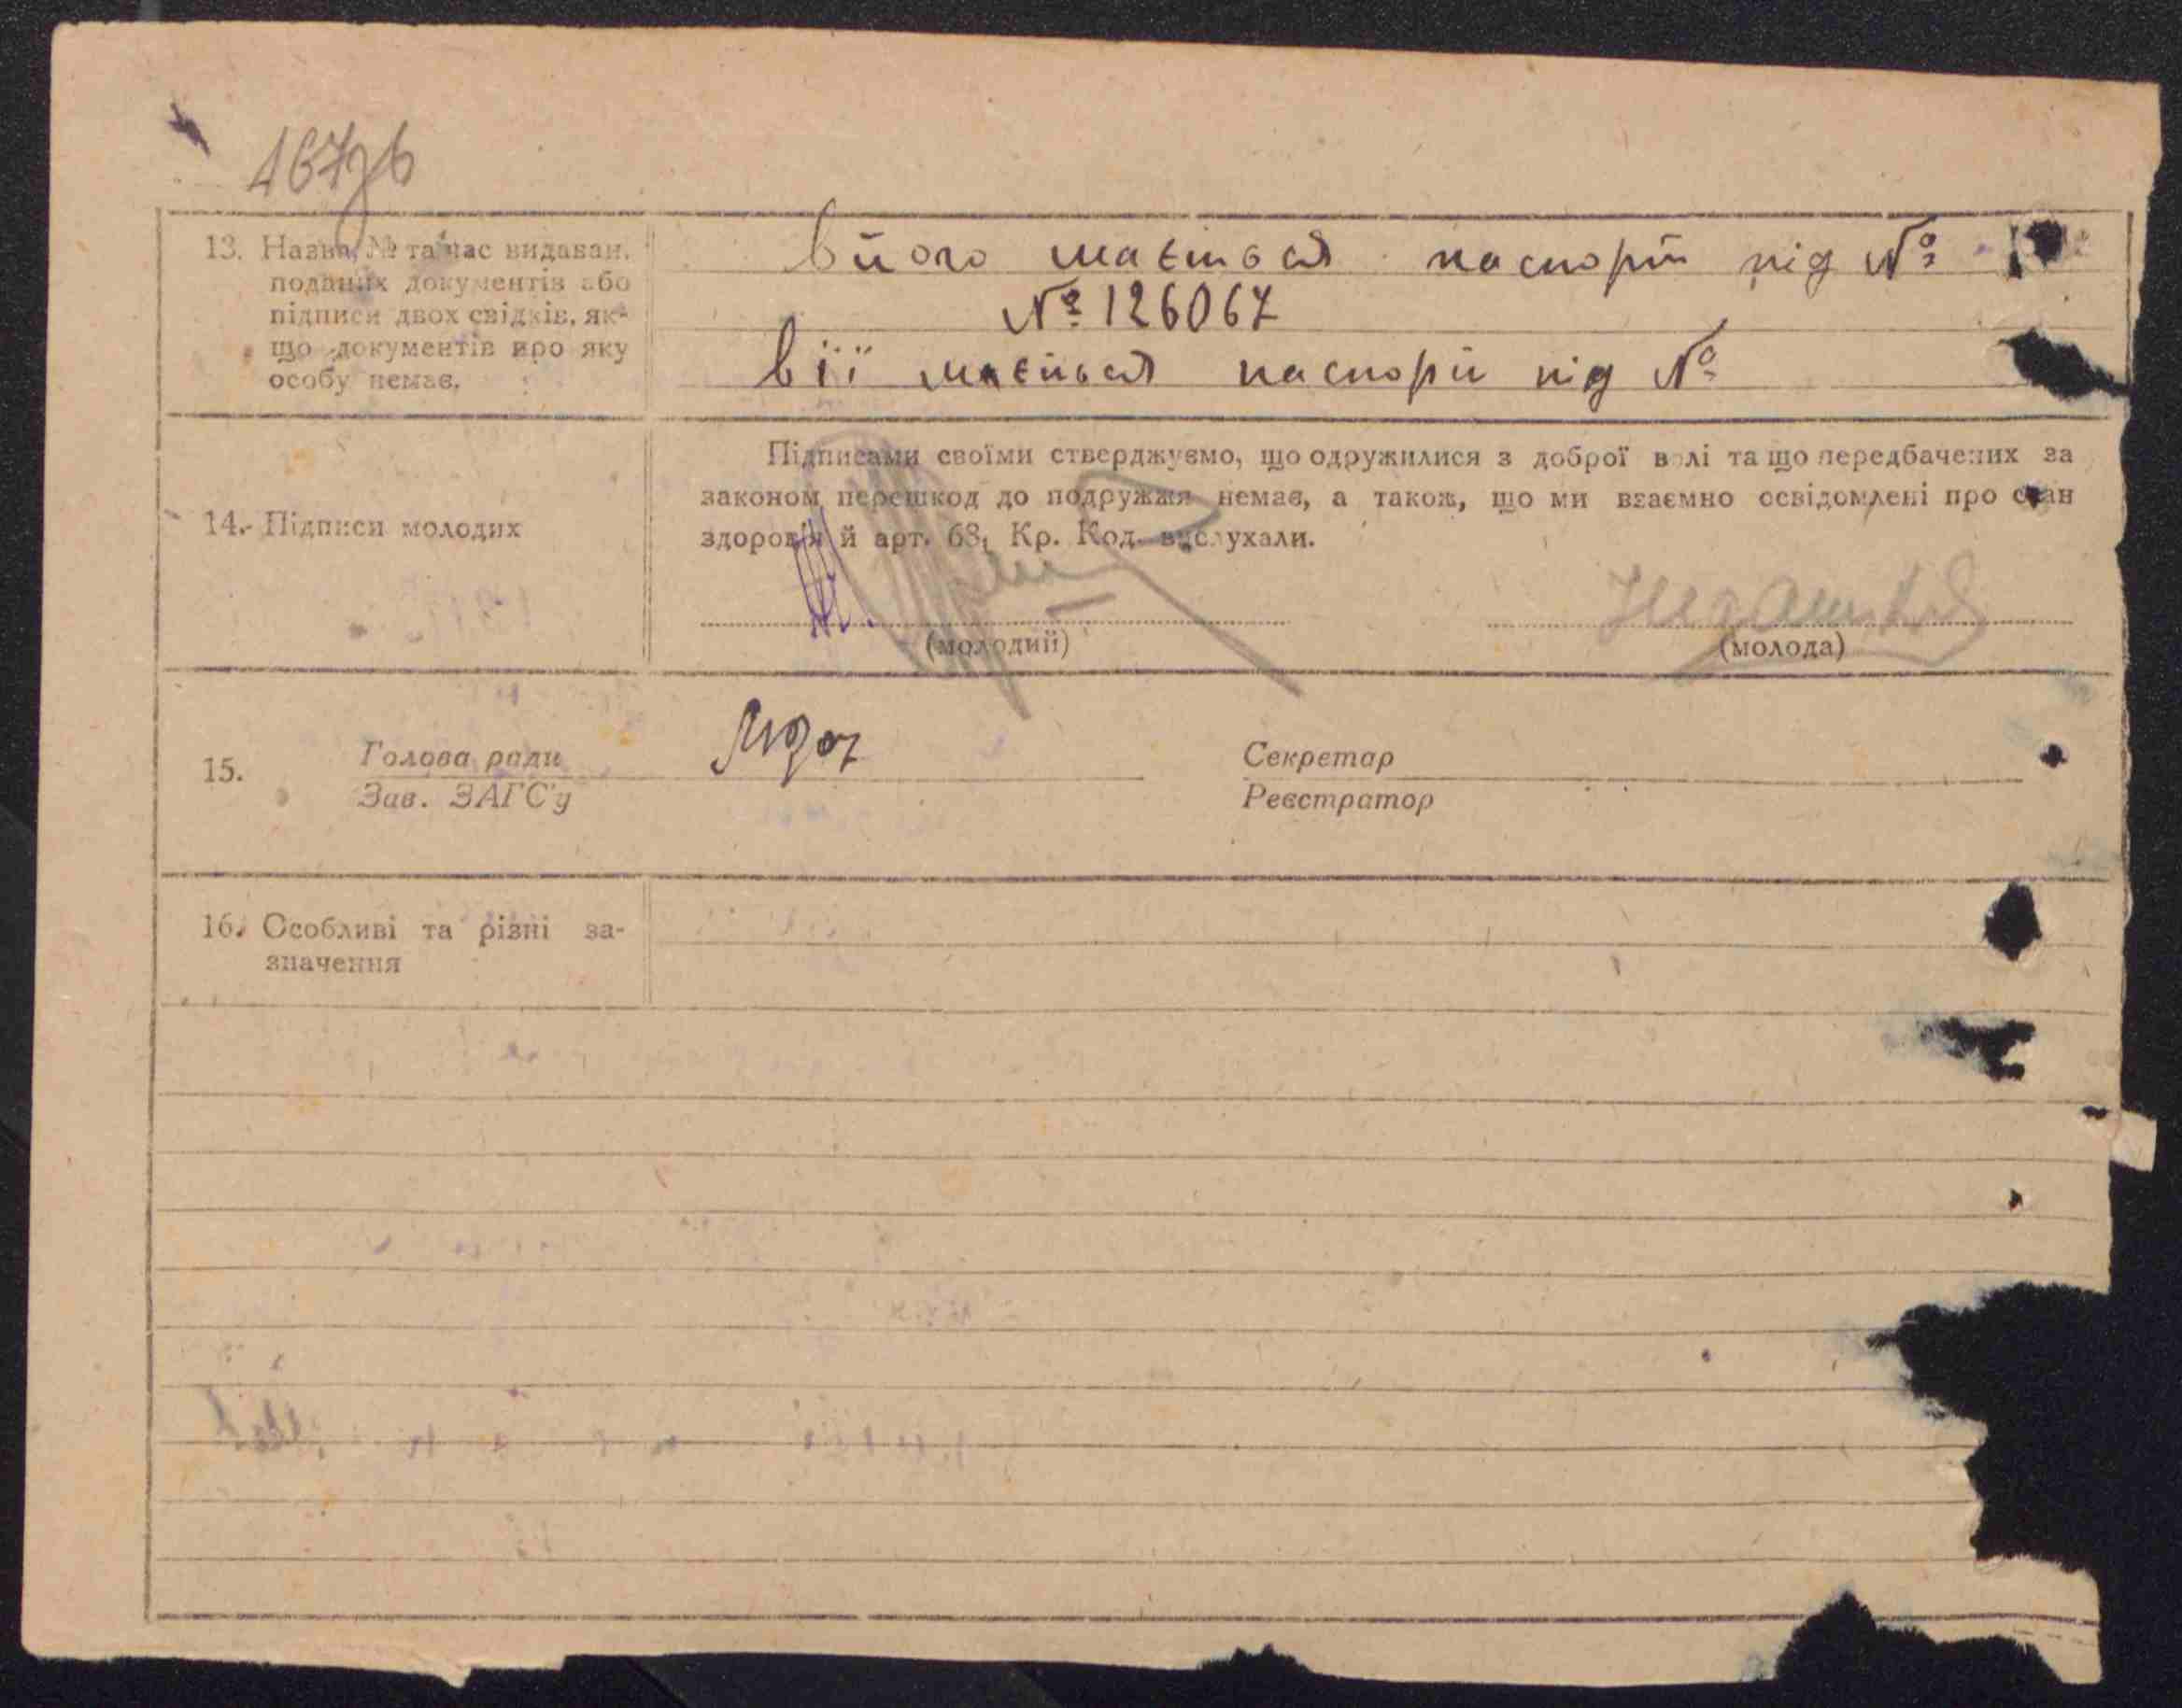 167зв
13. Назва, № та час видаван.
поданих документів або
підписи двох свідків, як-
що документів про яку
особу немає.
вйого мається паспорт під №
№ 126067
вії мається паспорт під №
14. Підписи молодих
Підписами своїми стверджуємо, що одружилися з доброї волі та що передбачених за
законом перешкод до подружжя немає, а також, що ми взаємно освідомлені про стан
здоров'я й арт. 68, Кр. Код. вислухали.
(молодий)
(молода)
15.
Голова ради
Зав. ЗАГС'у
Секретар
Реєстратор
16. Особливі та різні за-
значення